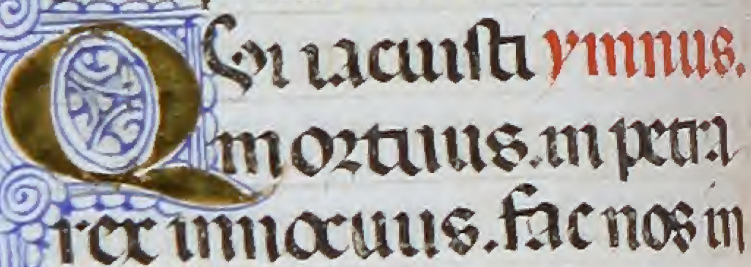 QVi iacuisti ymnus.
mortuus. in petra
rex innocuus. fac nos in